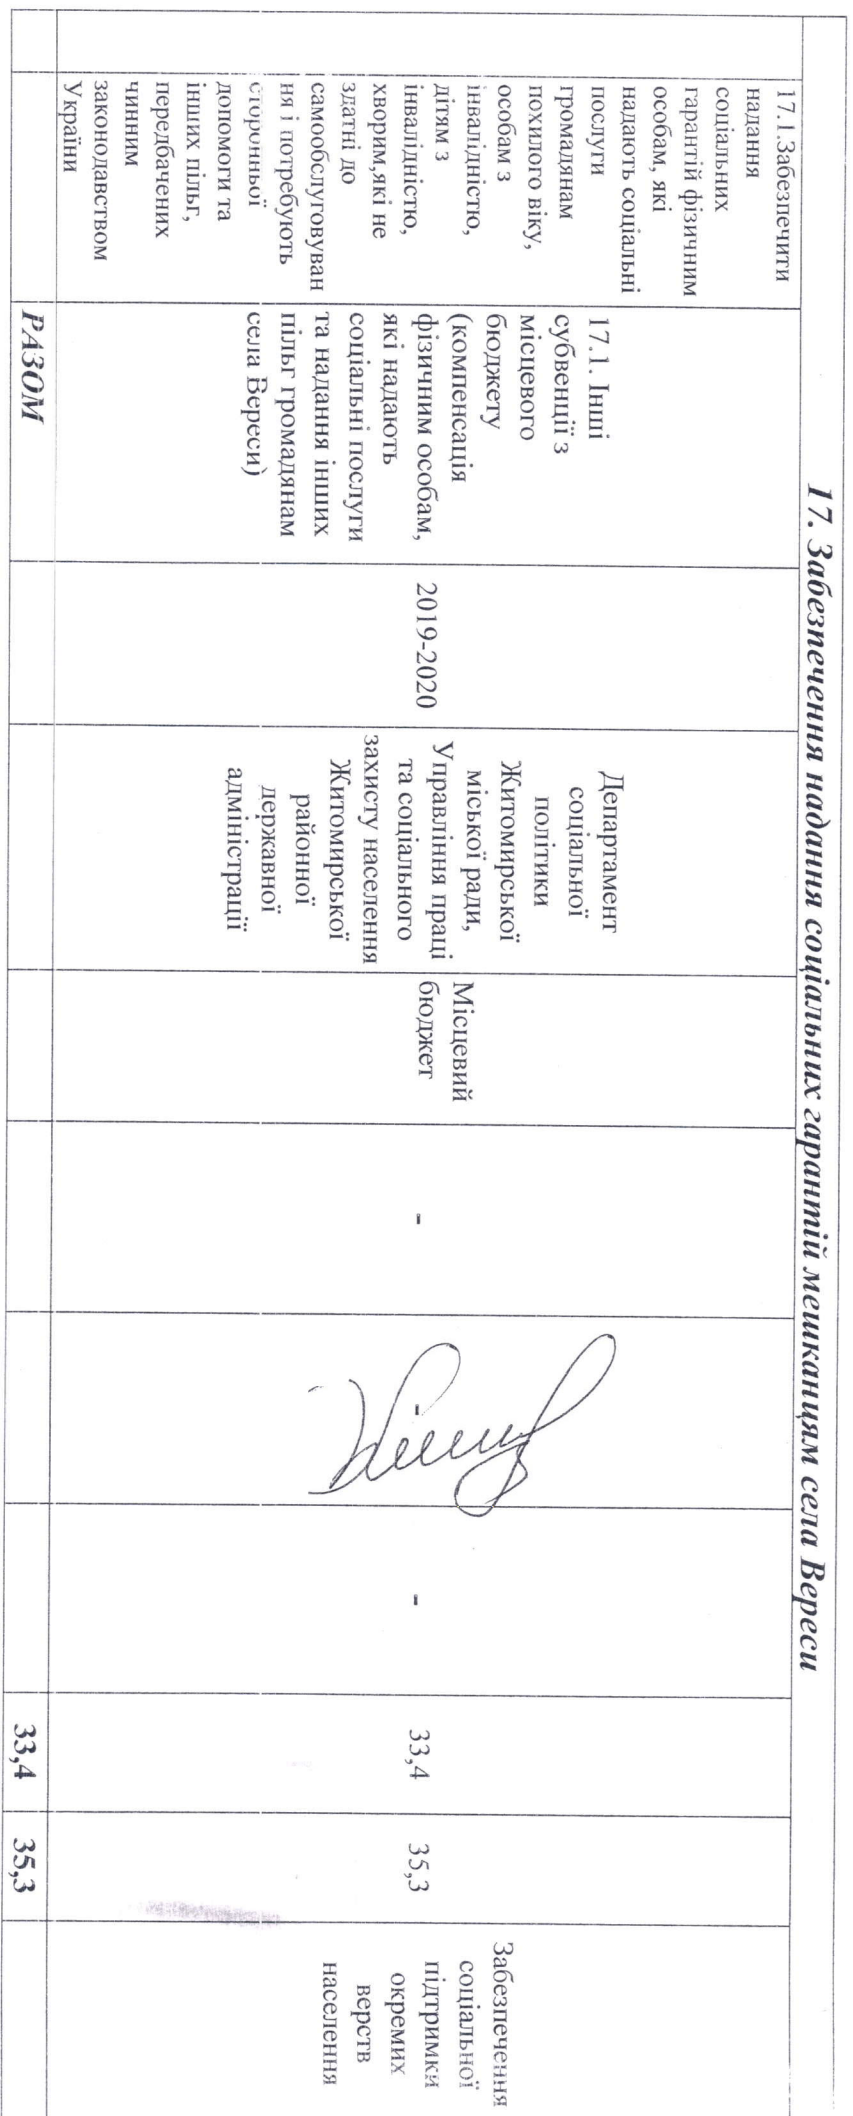 17. Забезпечення надання соціальних гарантій мешканцям села Вереси
17.1.Забезпечити
надання
соціальних
гарантій фізичним
особам, які
надають соціальні
послуги
громадянам
похилого віку,
особам з
інвалідністю,
дітям з
інвалідністю,
хворим,які не
здатні до
самообслуговуван
ня і потребують
сторонньої
допомоги та
інших пільг,
передбачених
чинним
законодавством
України
17.1. Інші
субвенції з
місцевого
бюджету
(компенсація
фізичним особам,
які надають
соціальні послуги
та надання інших
пільг громадянам
села Вереси)
2019-2020
Департамент
соціальної
політики
Житомирської
міської ради,
Управління праці
та соціального
захисту населення
Житомирської
районної
державної
адміністрації
Місцевий
бюджет
-
-
-
33,4
35,3
Забезпечення
соціальної
підтримки
окремих
верств
населення
РАЗОМ
33,4
35,3